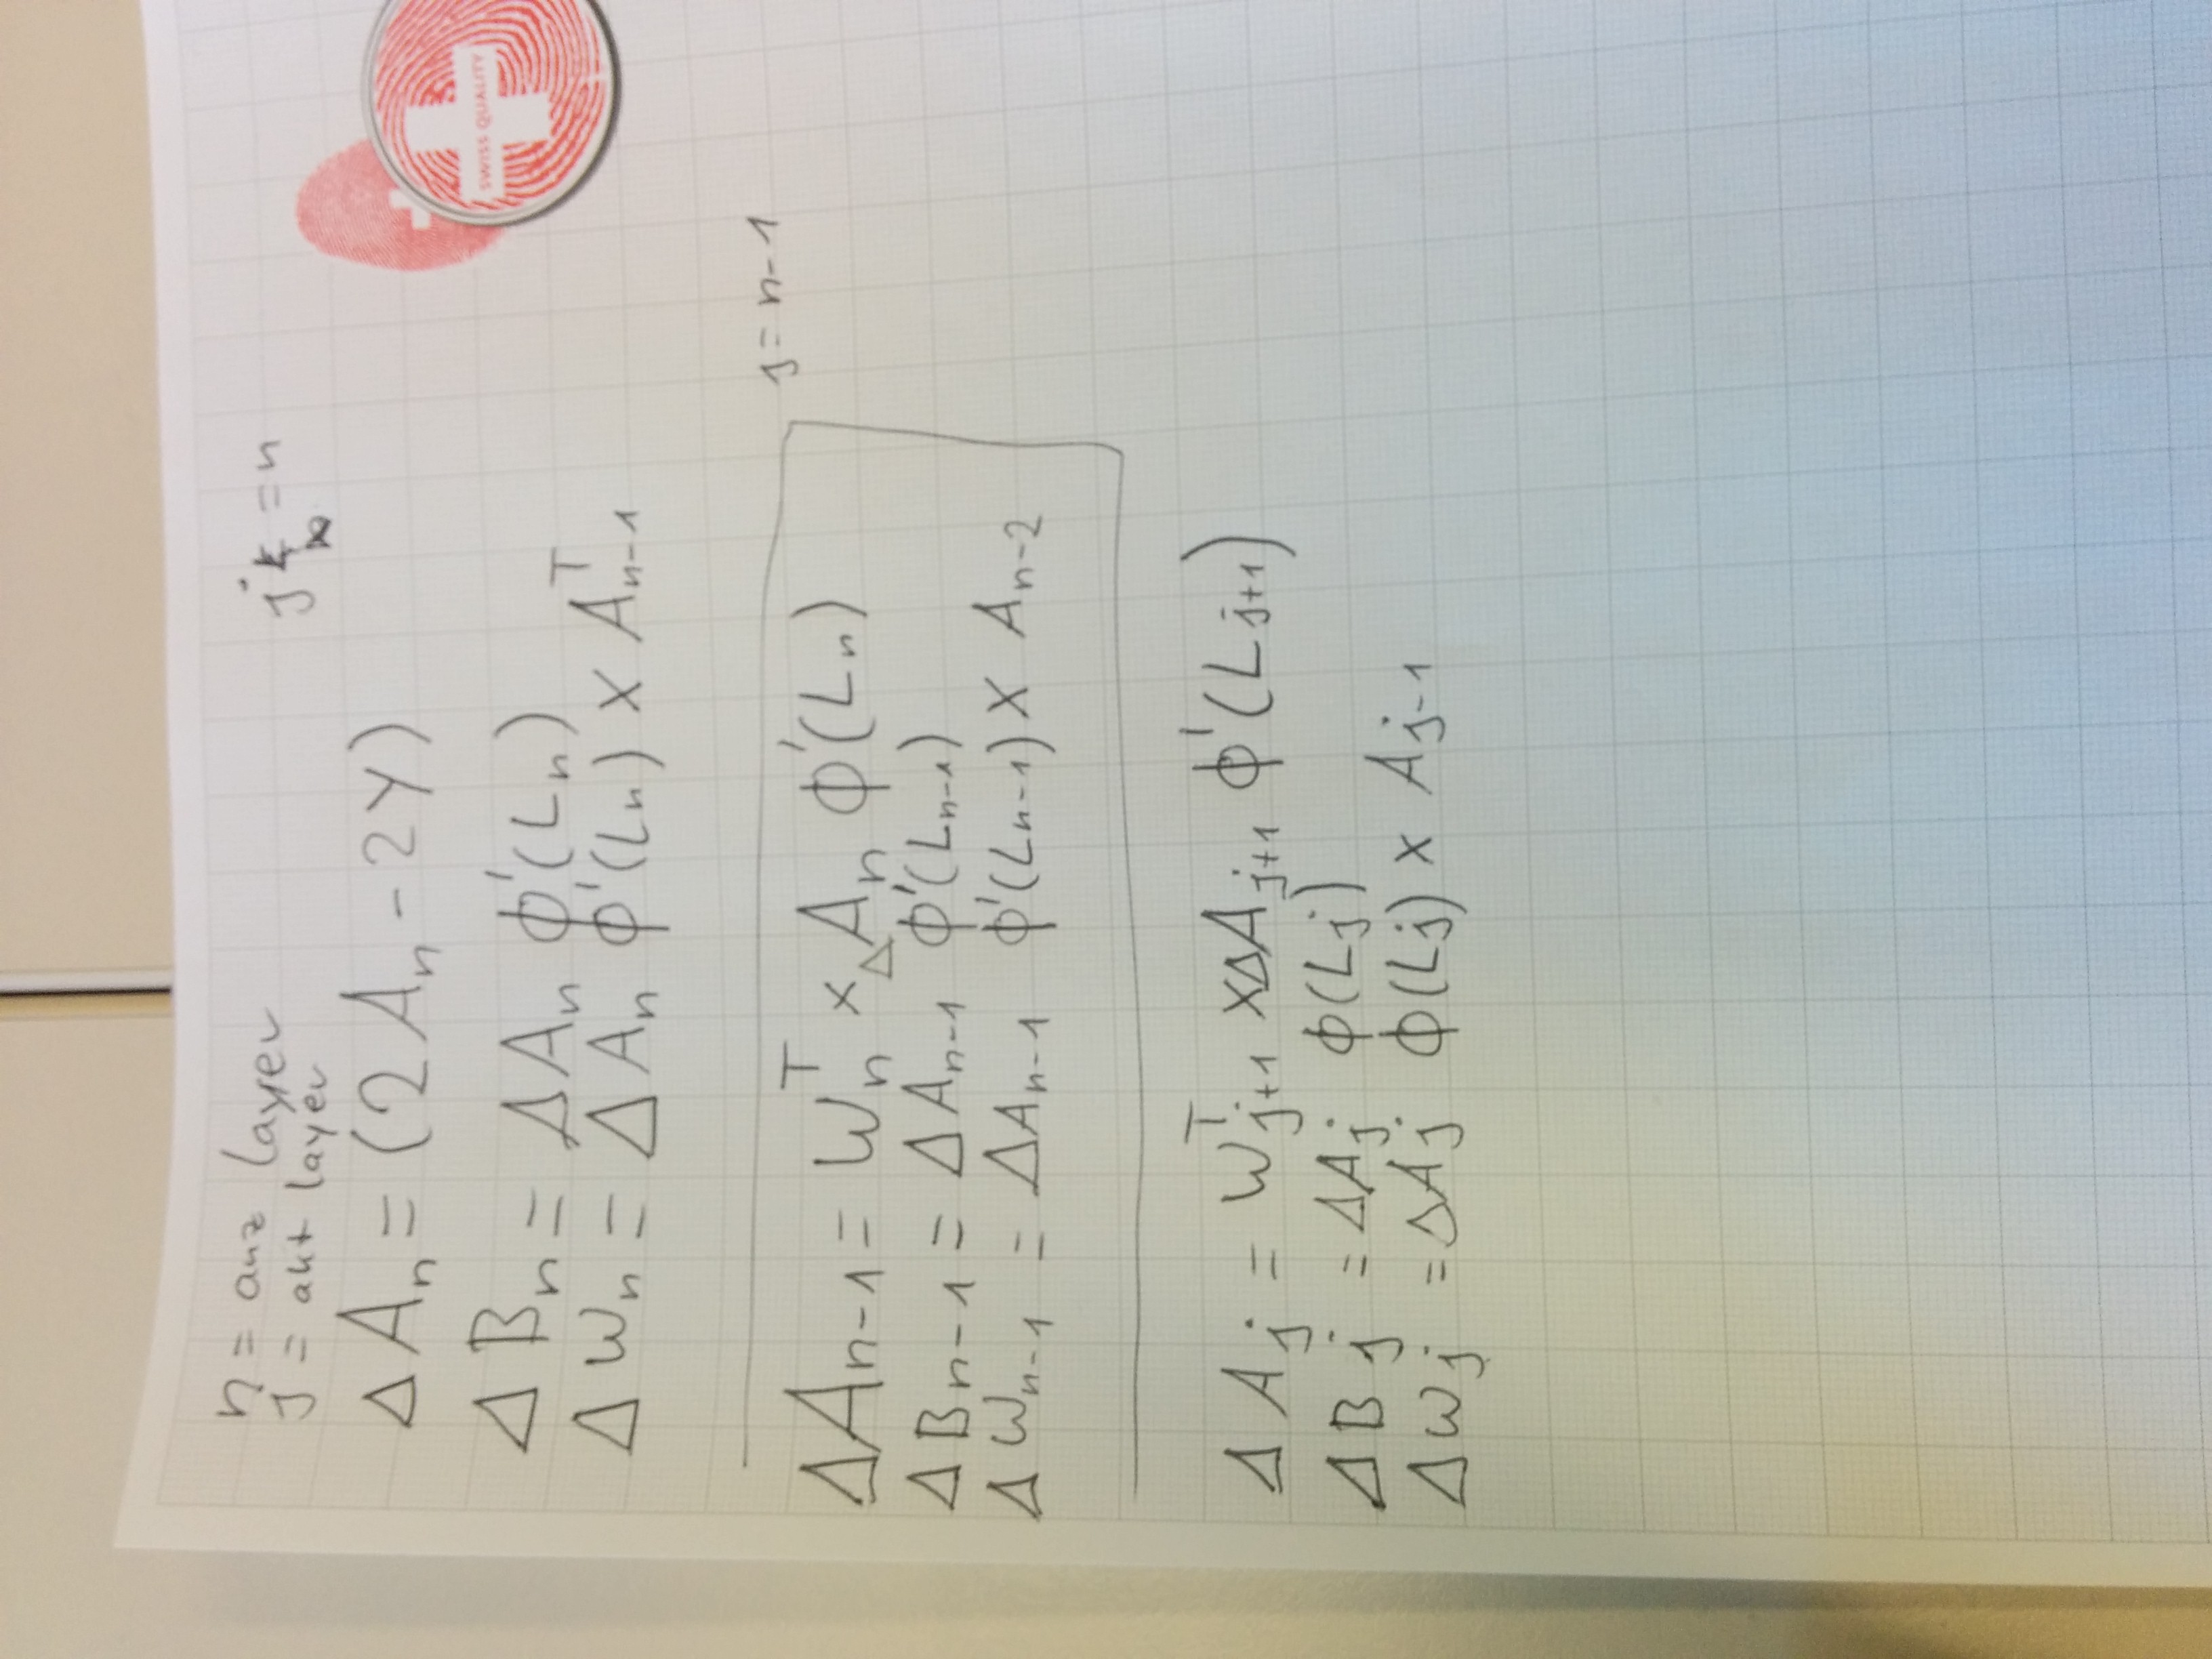 n = anz layer
j = akt layer
j = n
ΔAₙ = (2Aₙ - 2Y)
SWISS QUALITY
ΔBₙ = ΔAₙ ϕ'(Lₙ)
ΔWₙ = ΔAₙ ϕ'(Lₙ) × Aᵀₙ₋₁
j = n-1
ΔAₙ₋₁ = Wₙᵀ × ΔAₙ ϕ'(Lₙ)
ΔBₙ₋₁ = ΔAₙ₋₁ ϕ'(Lₙ₋₁)
ΔWₙ₋₁ = ΔAₙ₋₁ ϕ'(Lₙ₋₁) × Aₙ₋₂
ΔAⱼ = Wᵀⱼ₊₁ × ΔAⱼ₊₁ ϕ'(Lⱼ₊₁)
ΔBⱼ = ΔAⱼ ϕ(Lⱼ)
ΔWⱼ = ΔAⱼ ϕ(Lⱼ) × Aⱼ₋₁